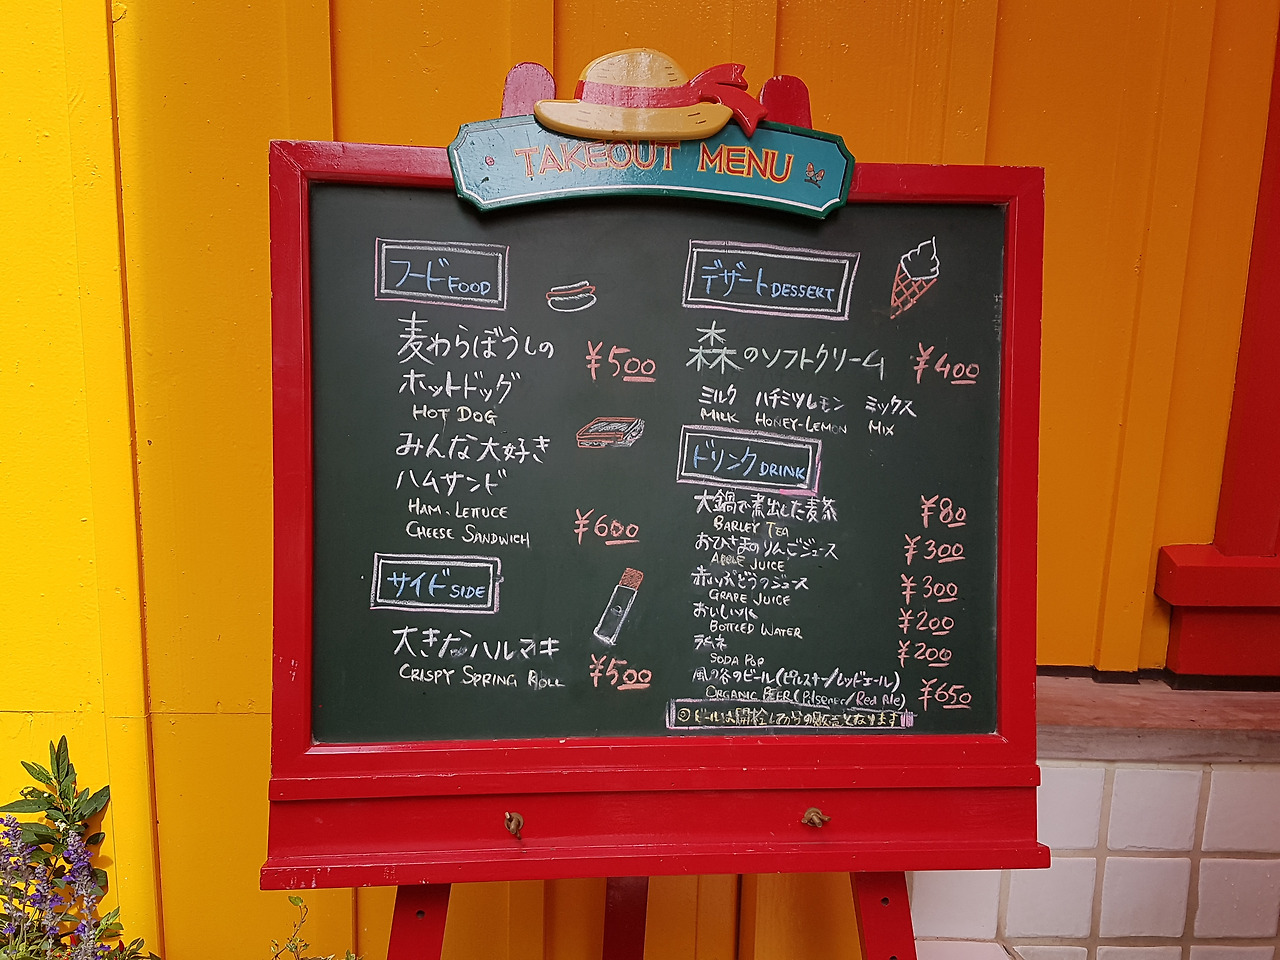 TAKEOUT MENU
フード FOOD
麦わらぼうしの
ホットドッグ
HOT DOG
¥500
みんな大好き
ハムサンド
HAM, LETTUCE
CHEESE SANDWICH
¥600
サイド SIDE
大きなハルマキ
CRISPY SPRING ROLL
¥500
デザート DESSERT
森のソフトクリーム ¥400
ミルク ハチミツレモン ミックス
MILK HONEY-LEMON MIX
ドリンク DRINK
大鍋で煮出した麦茶 ¥80
BARLEY TEA
おひさまのりんごジュース ¥300
APPLE JUICE
赤いぶどうのジュース ¥300
GRAPE JUICE
おいしい水 ¥200
BOTTLED WATER
ラムネ ¥200
SODA POP
風の谷のビール(ピルスナー/レッドエール) ¥650
ORGANIC BEER (Pilsener/Red Ale)
◎ビールは開栓してからの販売となります